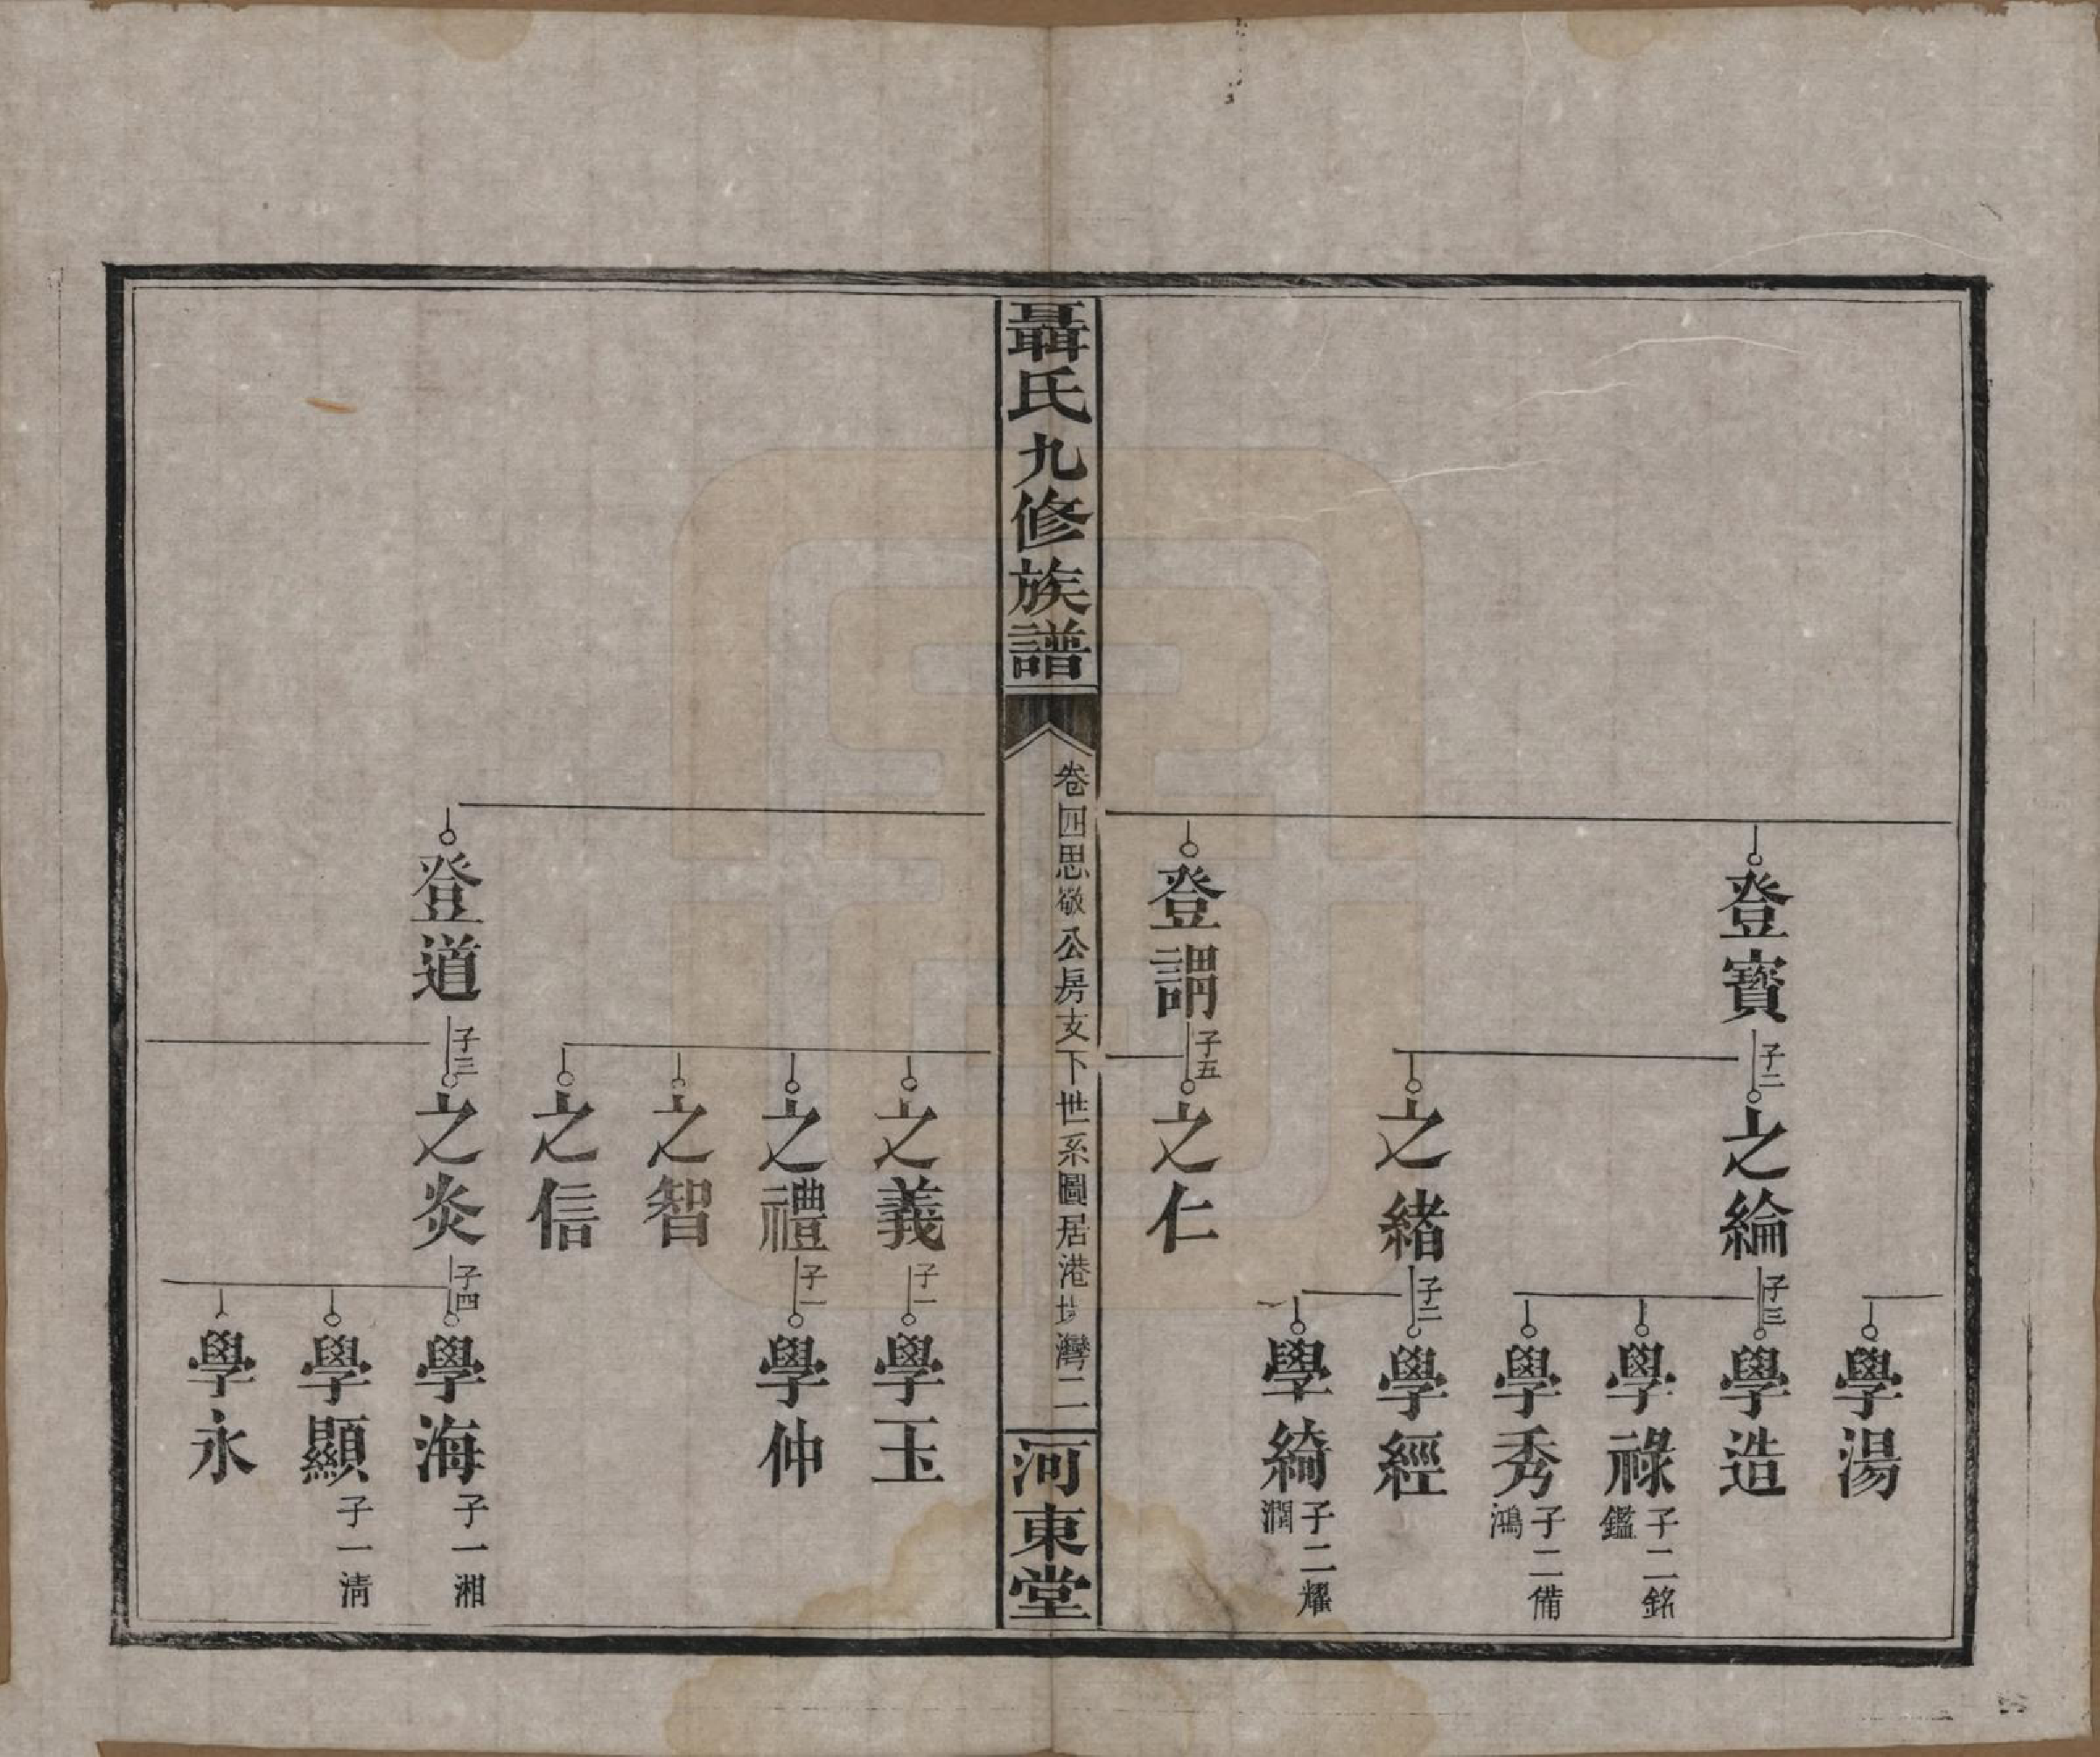 登寶
子二
之綸
子三
學湯
學造
學祿
子二銘
鑑
學秀
子二備
鴻
之緒
子二
學經
學綺
子二耀
潤
登謂
子五
之仁
聶氏九修族譜
卷四思敬公房支下世系圖居港塝灣二
河東堂
之義
子一
學玉
之禮
子一
學仲
之智
之信
登道
子三
之炎
子四
學海
子一湘
學顯
子一清
學永